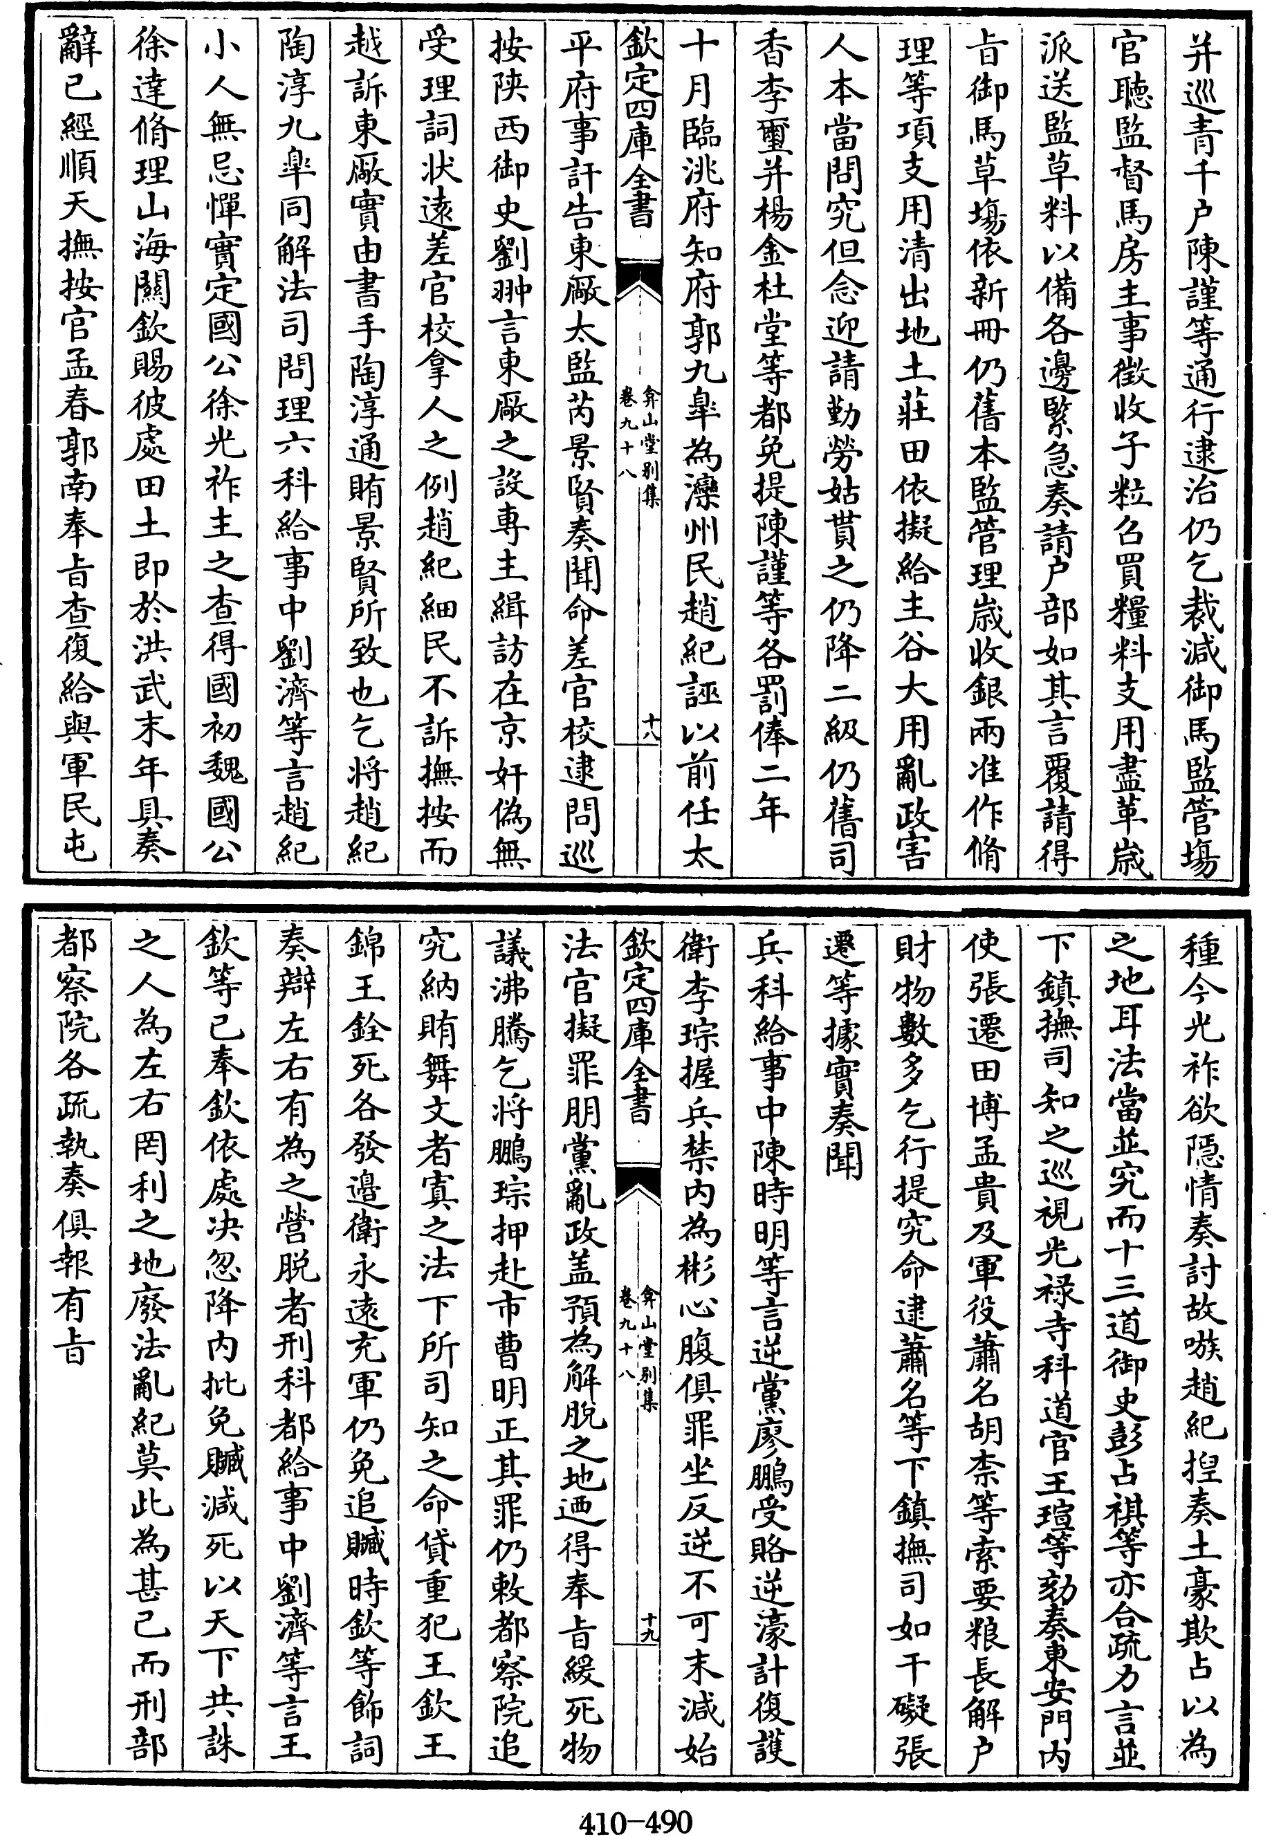 并巡青千户陳謹等通行逮治仍乞裁減御馬監管塲
官聽監督馬房主事徴收子粒召買糧料支用盡革嵗
派送監草料以備各邊緊急奏請户部如其言覆請得
㫖御馬草塲依新冊仍舊本監管理嵗收銀兩准作脩
理等項支用清出地土莊田依擬給主谷大用亂政害
人本當問究但念迎請勤勞姑貰之仍降二級仍舊司
香李璽并楊金杜堂等都免提陳謹等各罰俸二年
十月臨洮府知府郭九臯為灤州民趙紀誣以前任太
欽定四庫全書
弇山堂别集
卷九十八
十八
平府事訐告東厰太監芮景賢奏聞命差官校逮問巡
按陜西御史劉翀言東厰之設專主緝訪在京奸偽無
受理詞状逺差官校拿人之例趙紀細民不訴撫按而
越訴東厰實由書手陶淳通賄景賢所致也乞将趙紀
陶淳九臯同解法司問理六科給事中劉濟等言趙紀
小人無忌憚實定國公徐光祚主之查得國初魏國公
徐達脩理山海關欽賜彼處田土即於洪武末年具奏
辭已經順天撫按官孟春郭南奉㫖查復給與軍民屯
種今光祚欲隱情奏討故嗾趙紀揑奏土豪欺占以為
之地耳法當並究而十三道御史彭占祺等亦合疏力言並
下鎮撫司知之巡視光禄寺科道官王瑄等劾奏東安門内
使張遷田博孟貴及軍役蕭名胡柰等索要粮長解户
財物數多乞行提究命逮蕭名等下鎮撫司如干礙張
遷等據實奏聞
兵科給事中陳時明等言逆黨廖鵬受賂逆濠計復護
衛李琮握兵禁内為彬心腹俱罪坐反逆不可末減始
欽定四庫全書
弇山堂别集
卷九十八
十九
法官擬罪朋黨亂政盖預為解脱之地迺得奉㫖緩死物
議沸騰乞将鵬琮押赴市曹明正其罪仍敕都察院追
究納賄舞文者寘之法下所司知之命貸重犯王欽王
錦王銓死各發邉衛永逺充軍仍免追贓時欽等飾詞
奏辯左右有為之營脱者刑科都給事中劉濟等言王
欽等已奉欽依處决忽降内批免贓減死以天下共誅
之人為左右罔利之地廢法亂紀莫此為甚已而刑部
都察院各疏執奏俱報有㫖
410-490